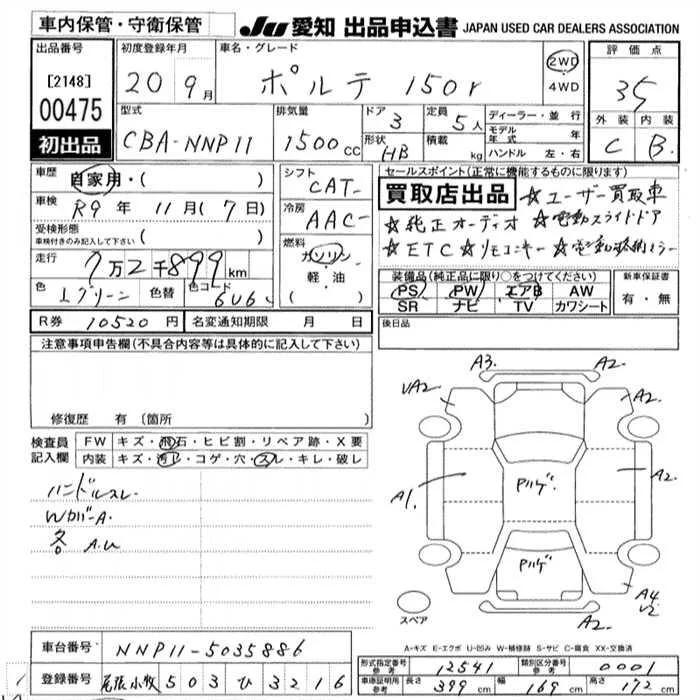 車内保管・守衛保管 JU 愛知 出品申込書 JAPAN USED CAR DEALERS ASSOCIATION
出品番号 初度登録年月 車名・グレード 評価点
[2148] 20 9月 ポルテ 150r 2WD 4WD 35
00475 型式 排気量 ドア 定員 ディーラー・並行 外装 内装
初出品 CBA-NNP11 1500cc 3 5人 モデル年式 年 C B
形状 HB 積載 kg ハンドル 左・右
車歴 自家用・( ) シフト CAT セールスポイント(正常に機能するものに限ります)
車検 R9年 11月(7日) 冷房 AAC 買取店出品 ☆ユーザー買取車
受検形態 ( ) ☆純正オーディオ ☆電動スライドドア
車検付きのみ記入して下さい
走行 7万2千899km 燃料 ガソリン・軽・油 ( ) ☆ETC ☆リモコンキー ☆電動格納ミラー
色 Lグリーン 色替 色コード 6U6 装備品(純正品に限り○をつけてください) 新車保証書
PS PW エアB AW 有・無
SR ナビ TV カワシート
R券 10520円 名変通知期限 月 日 後日品
注意事項申告欄(不具合内容等は具体的に記入して下さい)
修復歴 有 (箇所
検査員 記入欄 FW キズ・飛石・ヒビ割・リペア跡・X要
内装 キズ・汚レ・コゲ・穴・スレ・キレ・破レ
ハンドルスレ
Wカバ-A.
各 A.U
A3. A2.
UA2 A2.
A1. Pルゲ A2.
Pルゲ
スペア A4 U2
A2.
A-キズ E-エクボ U-凹み W-補修跡 S-サビ C-腐食 XX-交換済
車台番号 NNP11-5035886
形式指定番号 参考 12541 類別区分番号 参考 0001
登録番号 尾張小牧 503 ひ 3216
車庫証明用 参考 長さ 399cm 幅 169cm 高さ 172cm